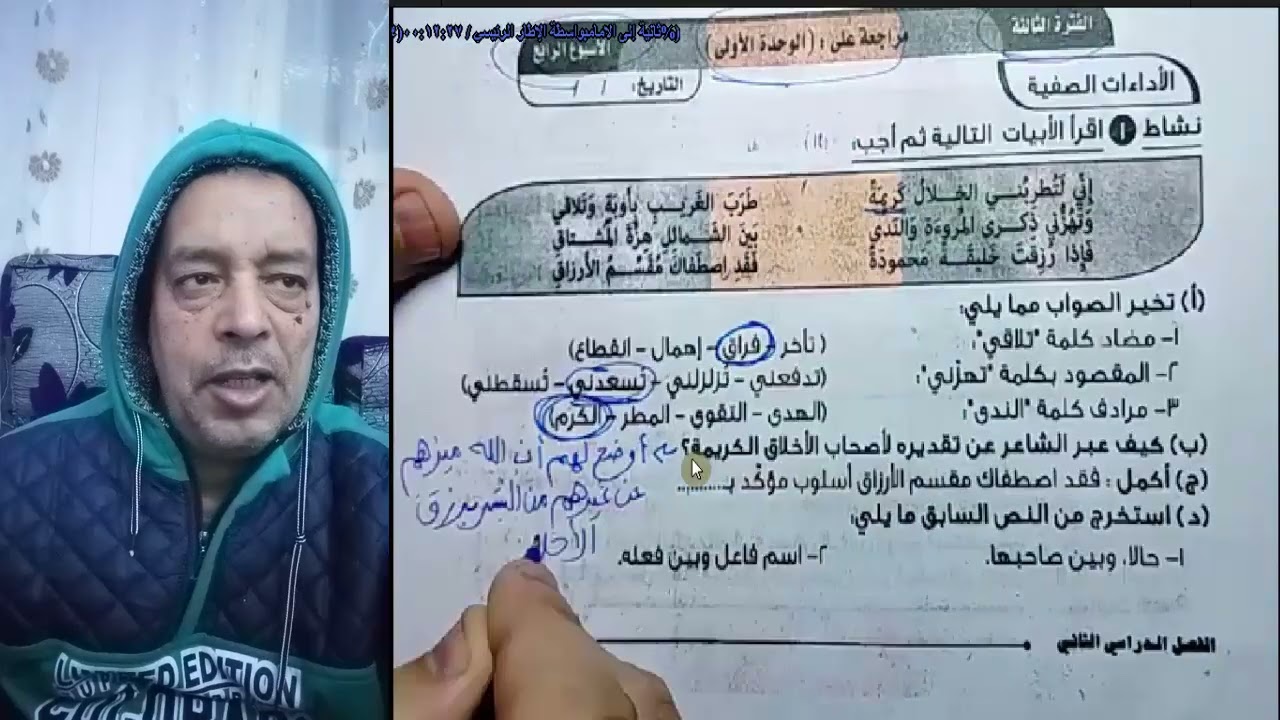 (5%ثانية إلى الامامبواسطة الإطار الرئيسي / ٠٠:١٢:٢٧
الفترة الثالثة
مراجعة على: (الوحدة الأولى)
الأسبوع الرابع
التاريخ: / /
الأداءات الصفية
نشاط ١ اقرأ الأبيات التالية ثم أجب:
إِنِّي لَتُطرِبُنـي الخِـلالُ كَرِيمَةً طَرَبَ الغَريـبِ بِأَوبَةٍ وَتَلاقي
وَتَهُزُّني ذِكرى المُروءَةِ وَالنَّدى بَينَ الشَّمائِلِ هِزَّةَ المُشتاقِ
فَإِذا رُزِقتَ خَليقَةً مَحمودَةً فَقَدِ اِصطَفاكَ مُقَسِّمُ الأَرزاقِ
(أ) تخير الصواب مما يلي:
١- مضاد كلمة "تلاقي": (تأخر - فراق - إهمال - انقطاع)
٢- المقصود بكلمة "تهزّني": (تدفعني - تزلزلني - تسعدني - تسقطني)
٣- مرادف كلمة "الندى": (الهدى - التقوى - المطر - الكرم)
(ب) كيف عبر الشاعر عن تقديره لأصحاب الأخلاق الكريمة؟
أوضح لهم أن الله ميزهم
عن غيرهم من البشر برزق
الأخلا
(ج) أكمل: فقد اصطفاك مقسم الأرزاق أسلوب مؤكد بـ..........
(د) استخرج من النص السابق ما يلي:
١- حالا، وبين صاحبها. ٢- اسم فاعل وبين فعله.
الفصل الدراسي الثاني
LIMITED EDITION